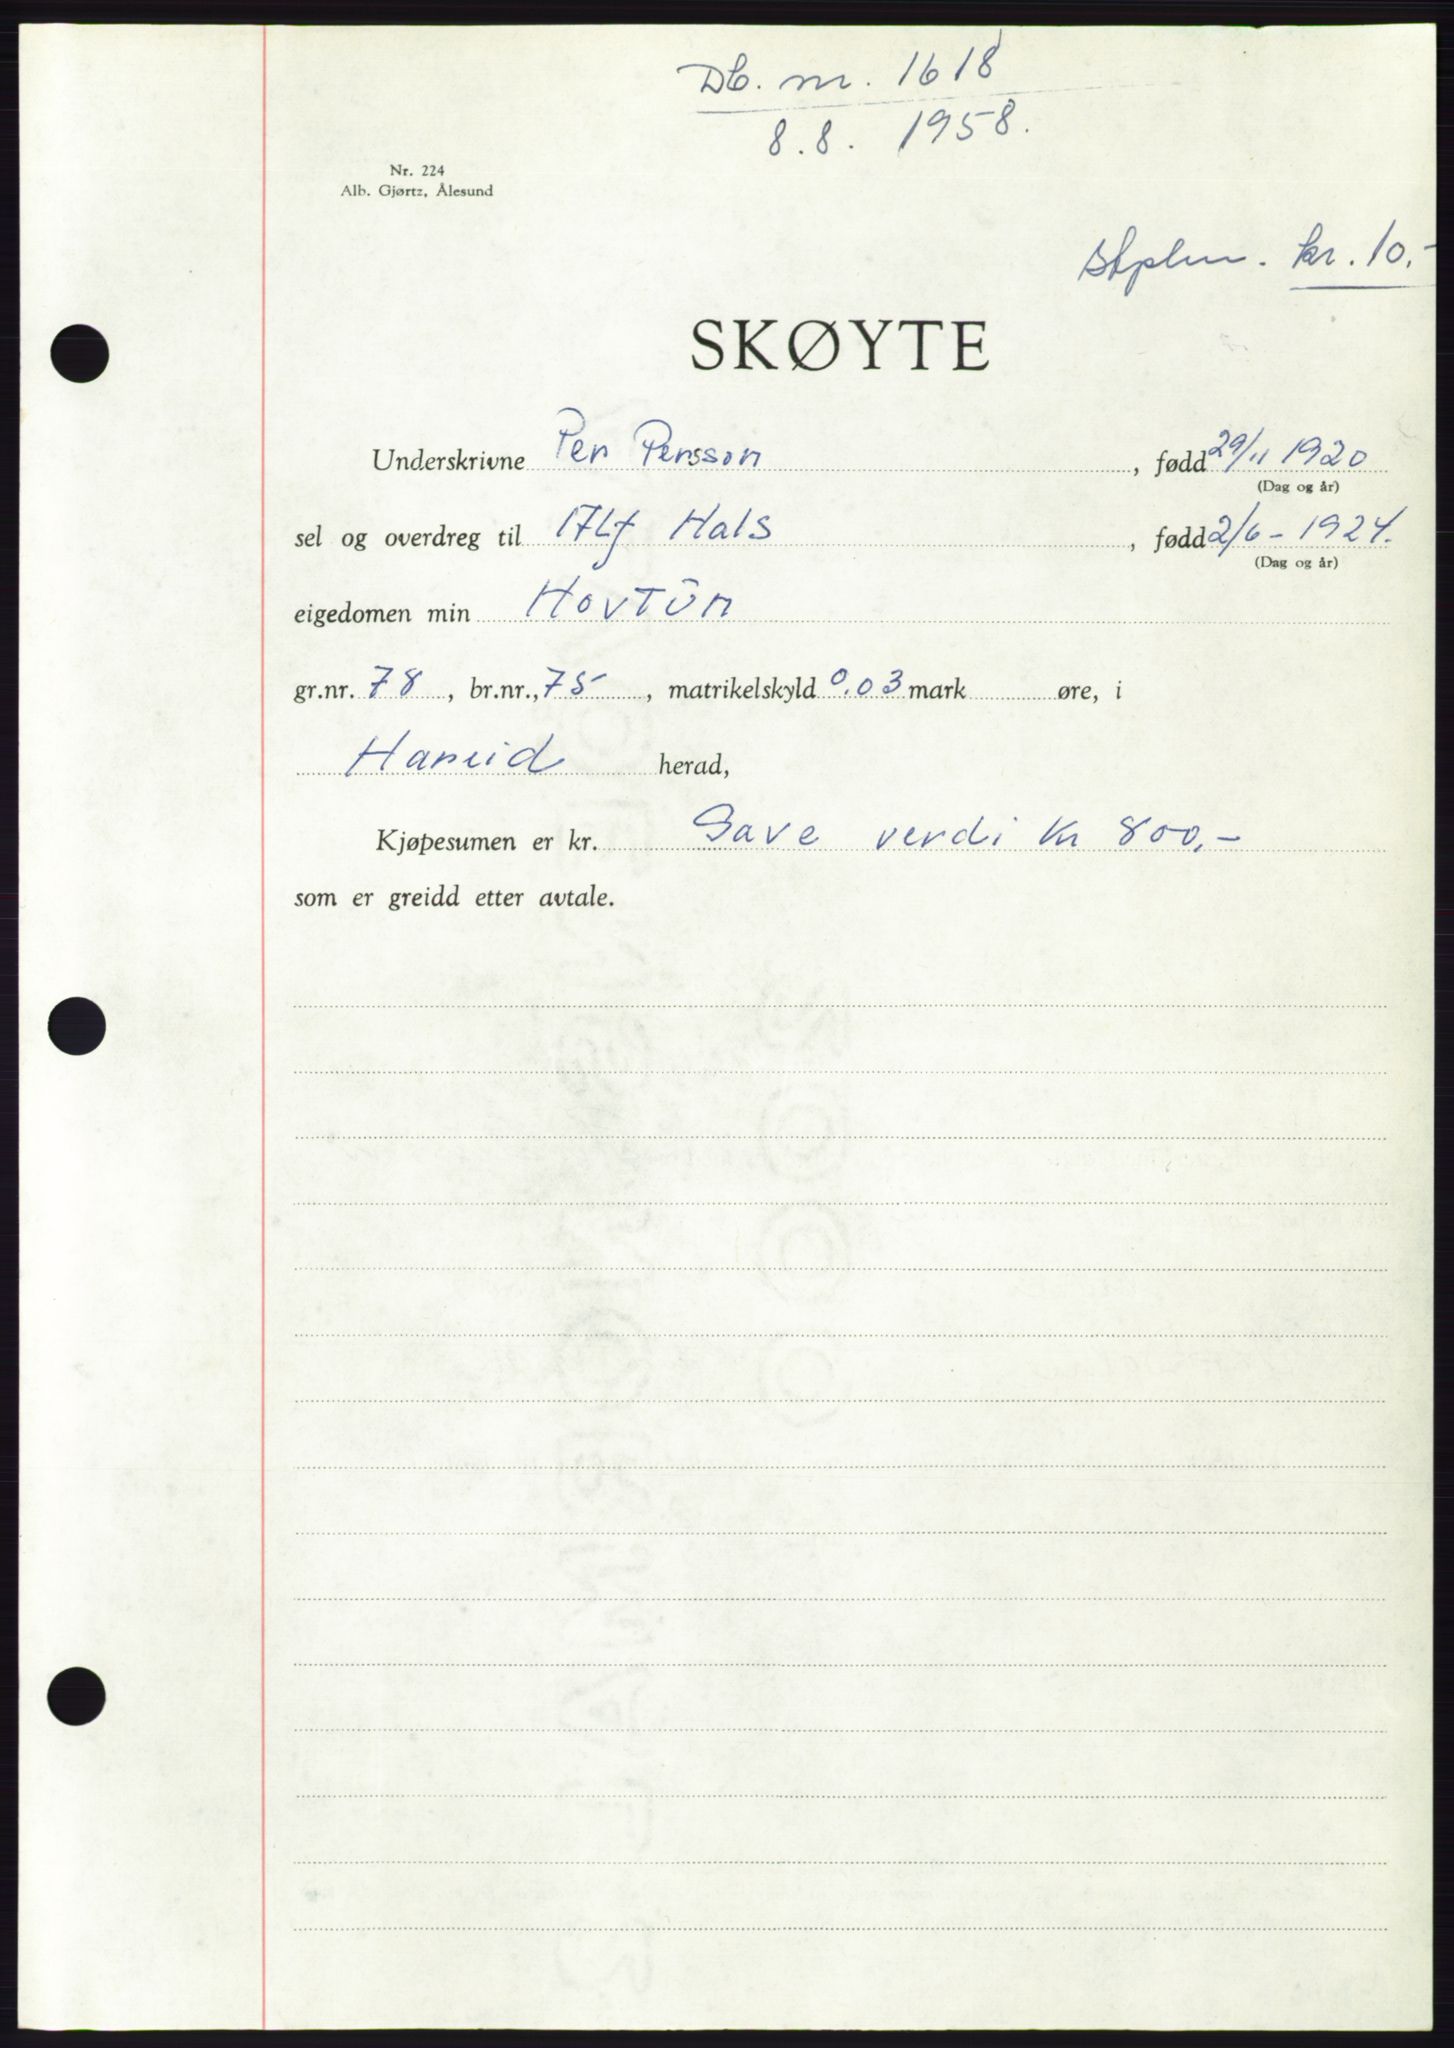 Db. nr. 1618
8.8. 1958.
Nr. 224
Alb. Gjørtz, Ålesund
Stplm. kr. 10.-
SKØYTE
Underskrivne Per Persson, fødd 29/11 1920
(Dag og år)
sel og overdreg til Alf Hals, fødd 2/6 - 1924.
(Dag og år)
eigedomen min Hovtŭn
gr.nr. 78, br.nr., 75, matrikelskyld 0.03 mark øre, i
Hareid herad,
Kjøpesumen er kr. Gave verdi Kr 800,-
som er greidd etter avtale.